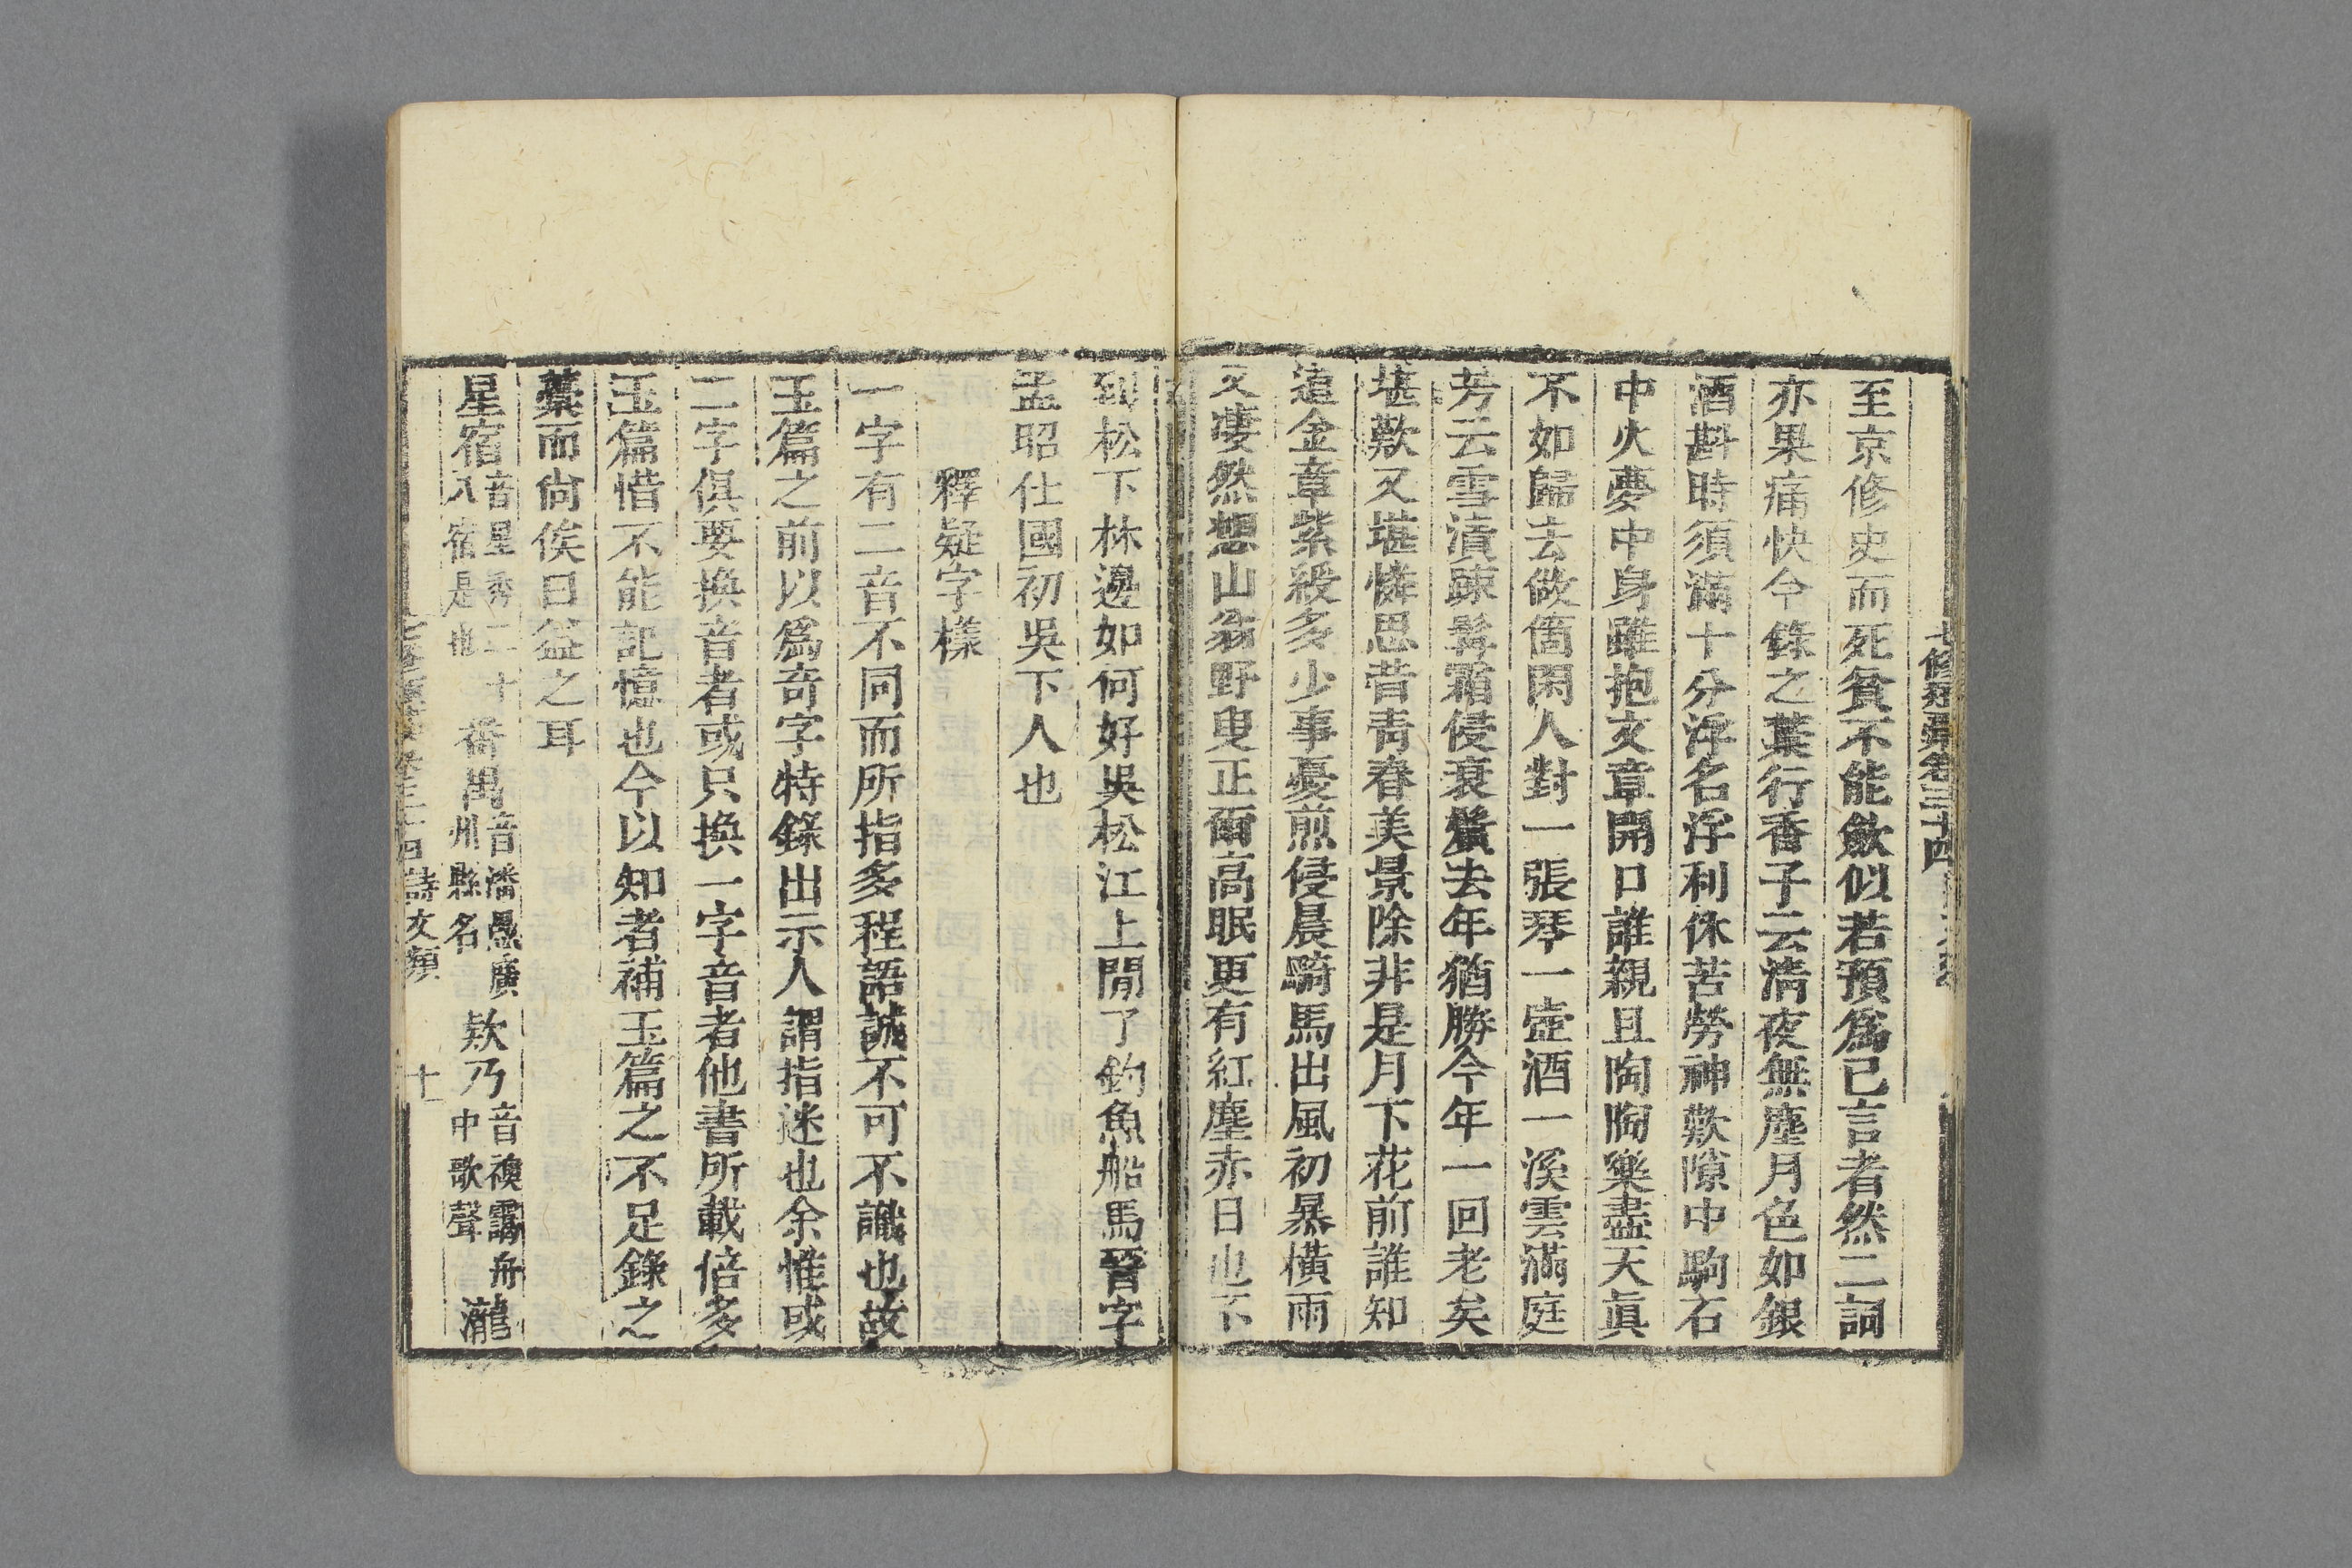 七修類藁卷三十四
至京修史而死貧不能斂似若預爲已言者然二詞
亦果痛快今錄之葉行香子云淸夜無塵月色如銀
酒斟時須滿十分浮名浮利休苦勞神歎隙中駒石
中火夢中身雖抱文章開口誰親且陶陶樂盡天眞
不如歸去做箇閑人對一張琴一壺酒一溪雲滿庭
芳云雪漬疎髯霜侵衰鬢去年猶勝今年一回老矣
堪歎又堪憐思昔靑春美景除非是月下花前誰知
道金章紫綬多少事憂煎侵晨騎馬出風初暴橫雨
又凄然想山翁野叟正爾高眠更有紅塵赤日也不
到松下林邊如何好吳松江上閒了釣魚船馬晉字
孟昭仕國初吳下人也
釋疑字樣
一字有二音不同而所指多程語誠不可不識也故
玉篇之前以爲奇字特錄出示人謂指迷也余惟或
二字俱要換音者或只換一字音者他書所載倍多
玉篇惜不能記憶也今以知者補玉篇之不足錄之
藁而尙俟曰益之耳
星宿音星秀二十八宿是也 番禺音潘愚廣州縣名 欵乃音襖靄舟中歌聲 瀧
詩文類 十一